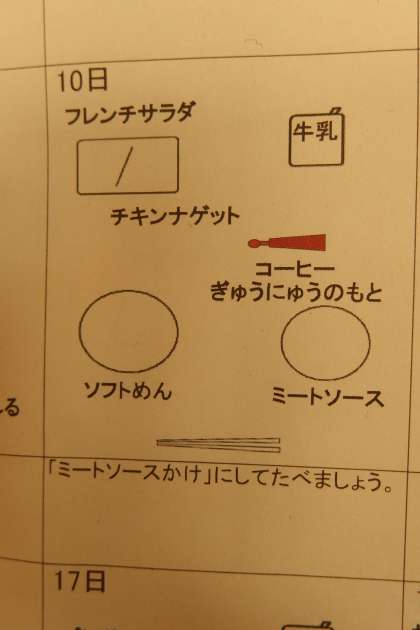 10日
フレンチサラダ
牛乳
チキンナゲット
コーヒー
ぎゅうにゅうのもと
ソフトめん
ミートソース
る
「ミートソースかけ」にしてたべましょう。
17日